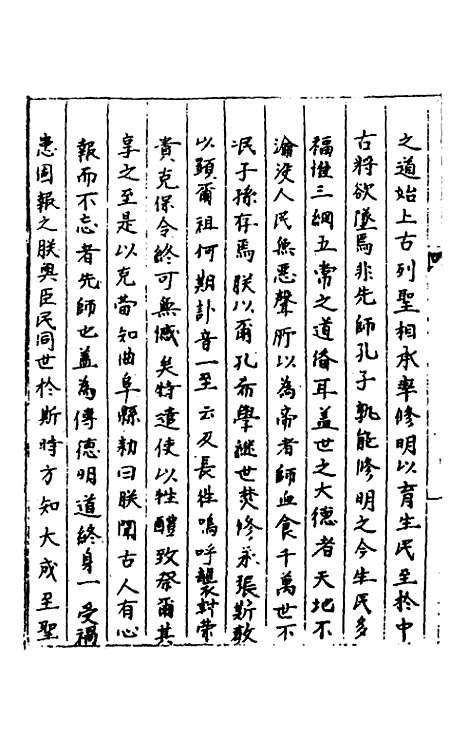 之道始上古列聖相承率修明以育生民至於中
古將欲墜焉非先師孔子孰能修明之今生民多
福惟三綱五常之道脩耳盖世之大德者天地不
淪没人民無惡聲所以為帝者師血食千萬世不
泯子孫存焉朕以爾孔希學継世焚修永張斯教
以顕爾祖何期訃音一至云及長徃嗚呼襲封荣
貴克保令終可無憾矣特遣使以牲醴致祭爾其
享之至是以克當知曲阜縣勅曰朕聞古人有心
報而不忘者先師也盖為傳德明道終身一受禍
患固報之朕與臣民同世於斯時方知大成至聖